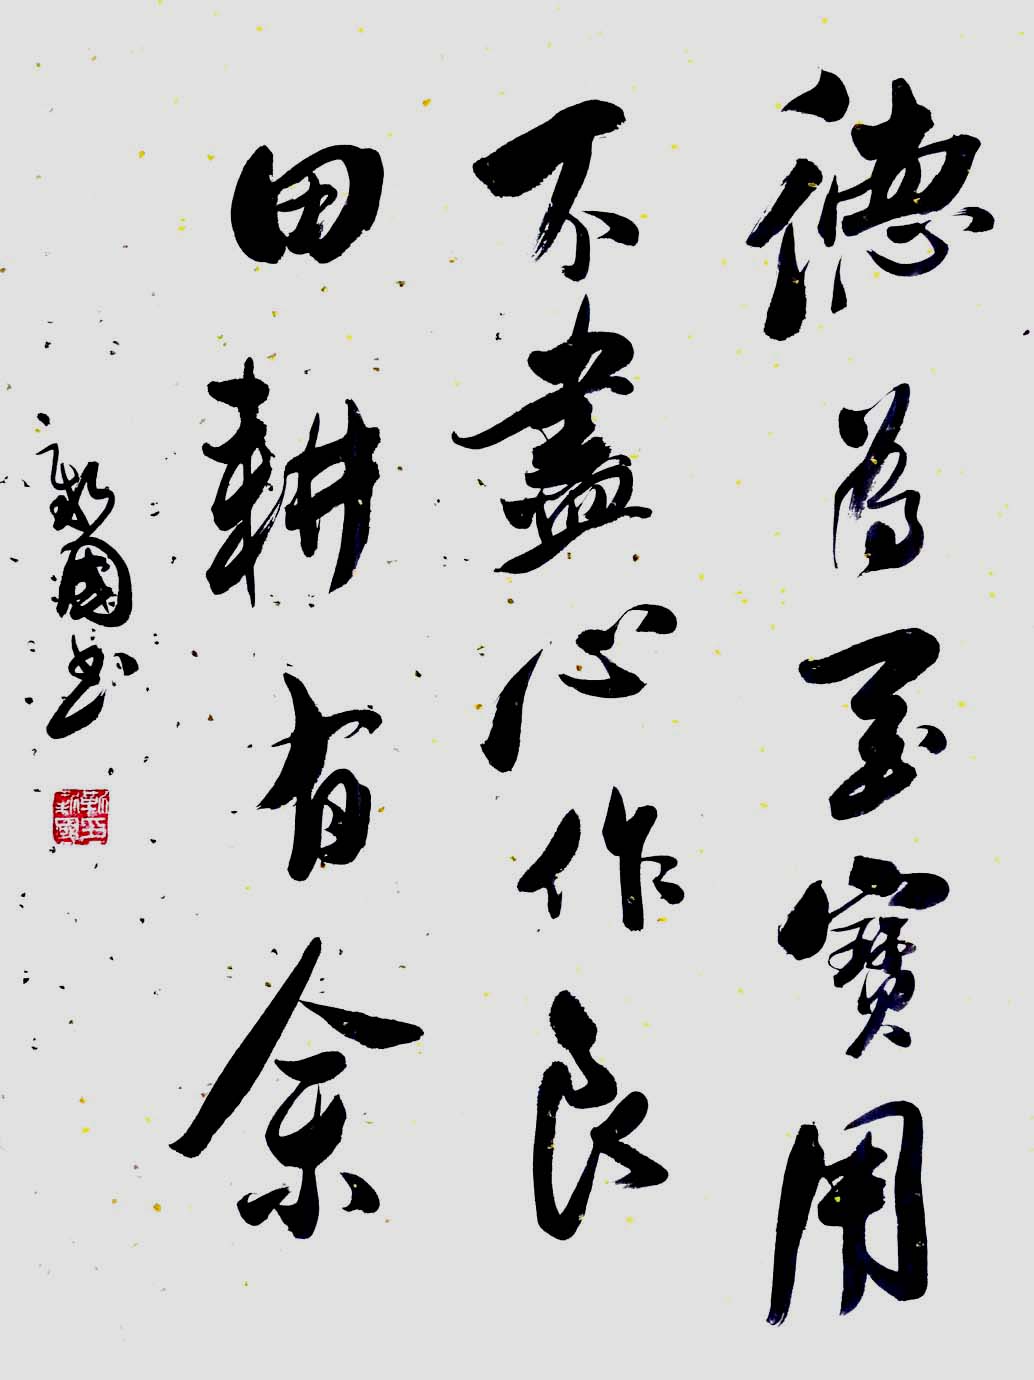 德為至寶用
不盡心作良
田耕有余
國书